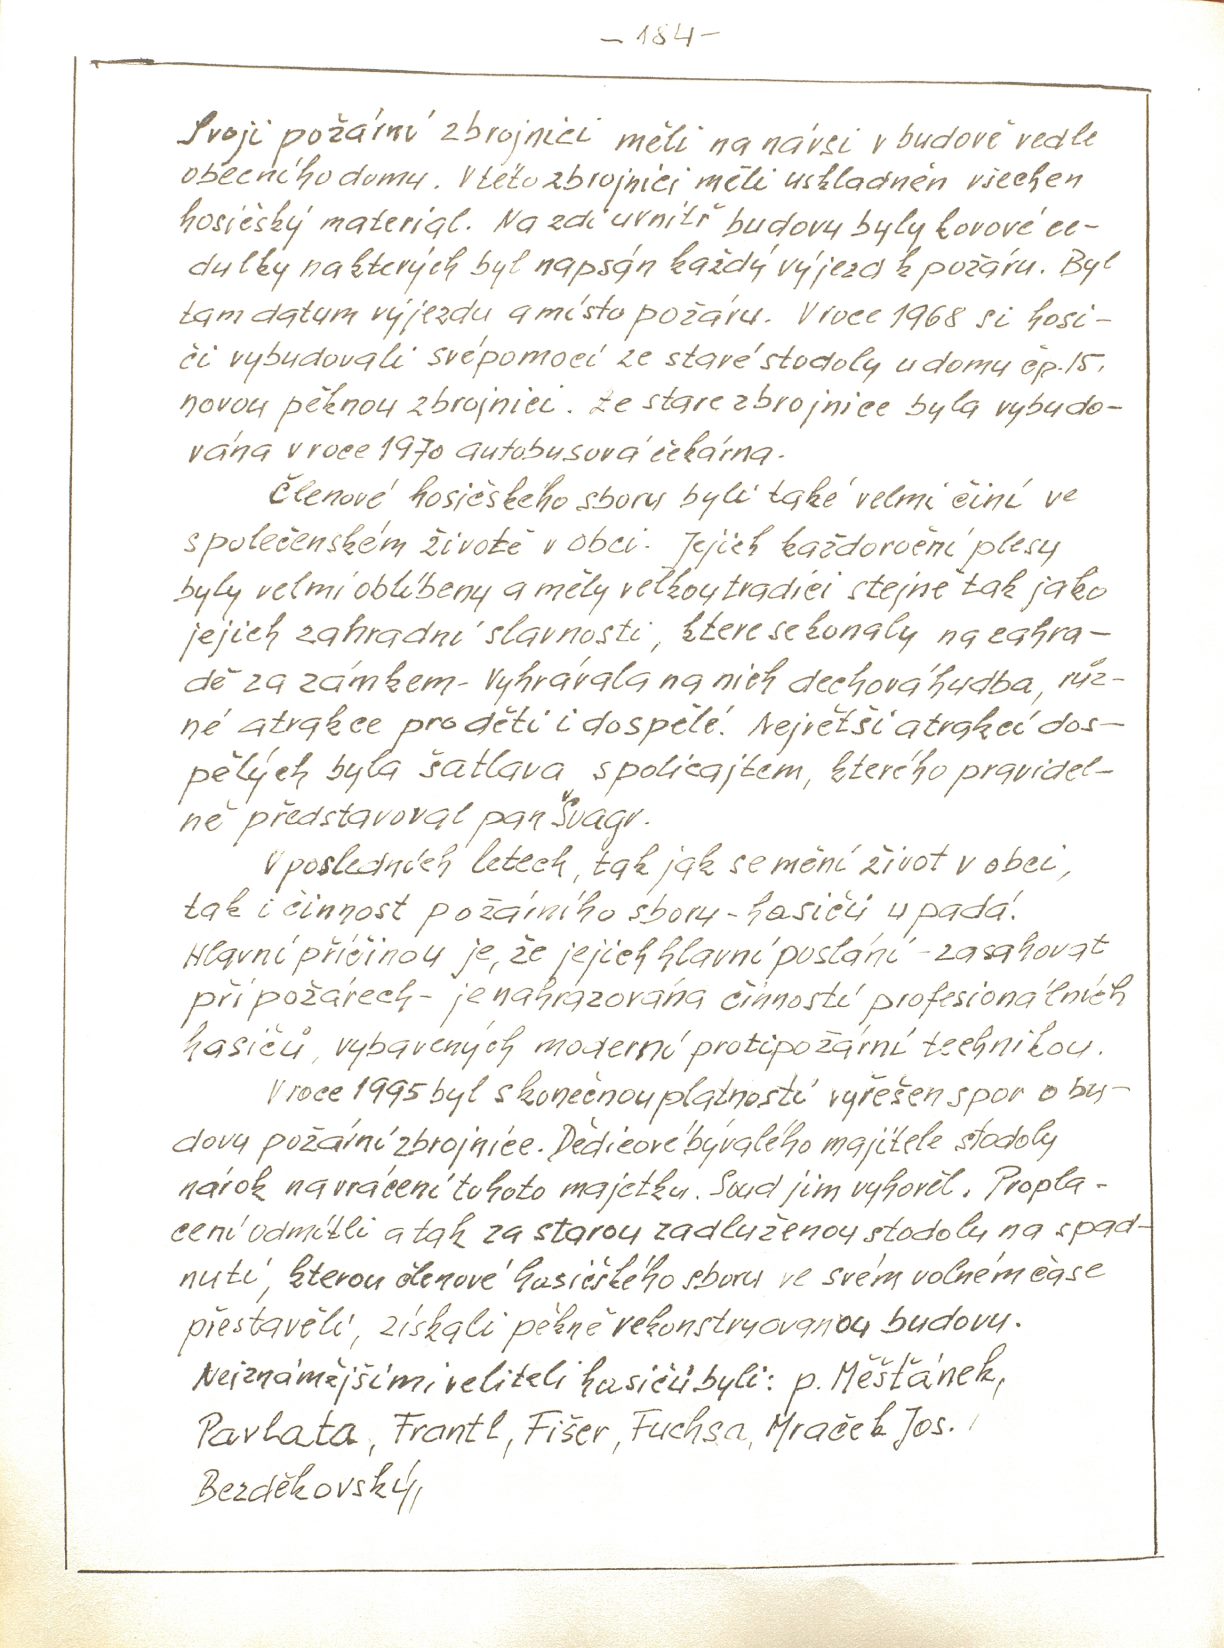 – 184 –
Svoji požární zbrojnici měli na návsi v budově vedle
obecního domu. V této zbrojnici měli uskladněn všechen
hasičský materiál. Na zdi uvnitř budovy byly kovové ce-
dulky na kterých byl napsán každý výjezd k požáru. Byl
tam datum výjezdu a místo požáru. V roce 1968 si hasi-
či vybudovali svépomocí ze staré stodoly u domu čp. 15,
novou pěknou zbrojnici. Ze staré zbrojnice byla vybudo-
vána v roce 1970 autobusová čekárna.
Členové hasičského sboru byli také velmi činí ve
společenském životě v obci. Jejich každoroční plesy
byly velmi oblíbeny a měly velkou tradici stejně tak jako
jejich zahradní slavnosti, které se konaly na zahra-
dě za zámkem. Vyhrávala na nich dechová hudba, růz-
né atrakce pro děti i dospělé. Největší atrakcí dos-
pělých byla šatlava s policajtem, kterého pravidel-
ně představoval pan Švagr.
V posledních letech, tak jak se mění život v obci,
tak i činnost požárního sboru - hasičů upadá.
Hlavní příčinou je, že jejich hlavní poslání - zasahovat
při požárech - je nahrazována činností profesionálních
hasičů, vybavených moderní protipožární technikou.
V roce 1995 byl s konečnou platností vyřešen spor o bu-
dovu požární zbrojnice. Dědicové bývalého majitele stodoly
nárok navrácení tohoto majetku. Soud jim vyhověl. Propla-
cení odmítli a tak za starou zadluženou stodolu na spad-
nutí, kterou členové hasičského sboru ve svém volném čase
přestavěli, získali pěkně rekonstruovanou budovu.
Nejznámějšími veliteli hasičů byli: p. Měšťánek,
Pavlata, Frantl, Fišer, Fuchsa, Mraček Jos.
Bezděkovský,